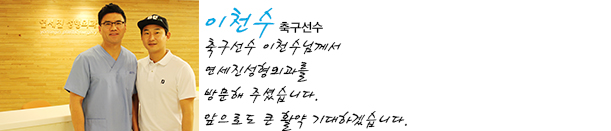 연세진 성형외과
이천수 축구선수
축구선수 이천수님께서
연세진성형외과를
방문해 주셨습니다.
앞으로도 큰 활약 기대하겠습니다.